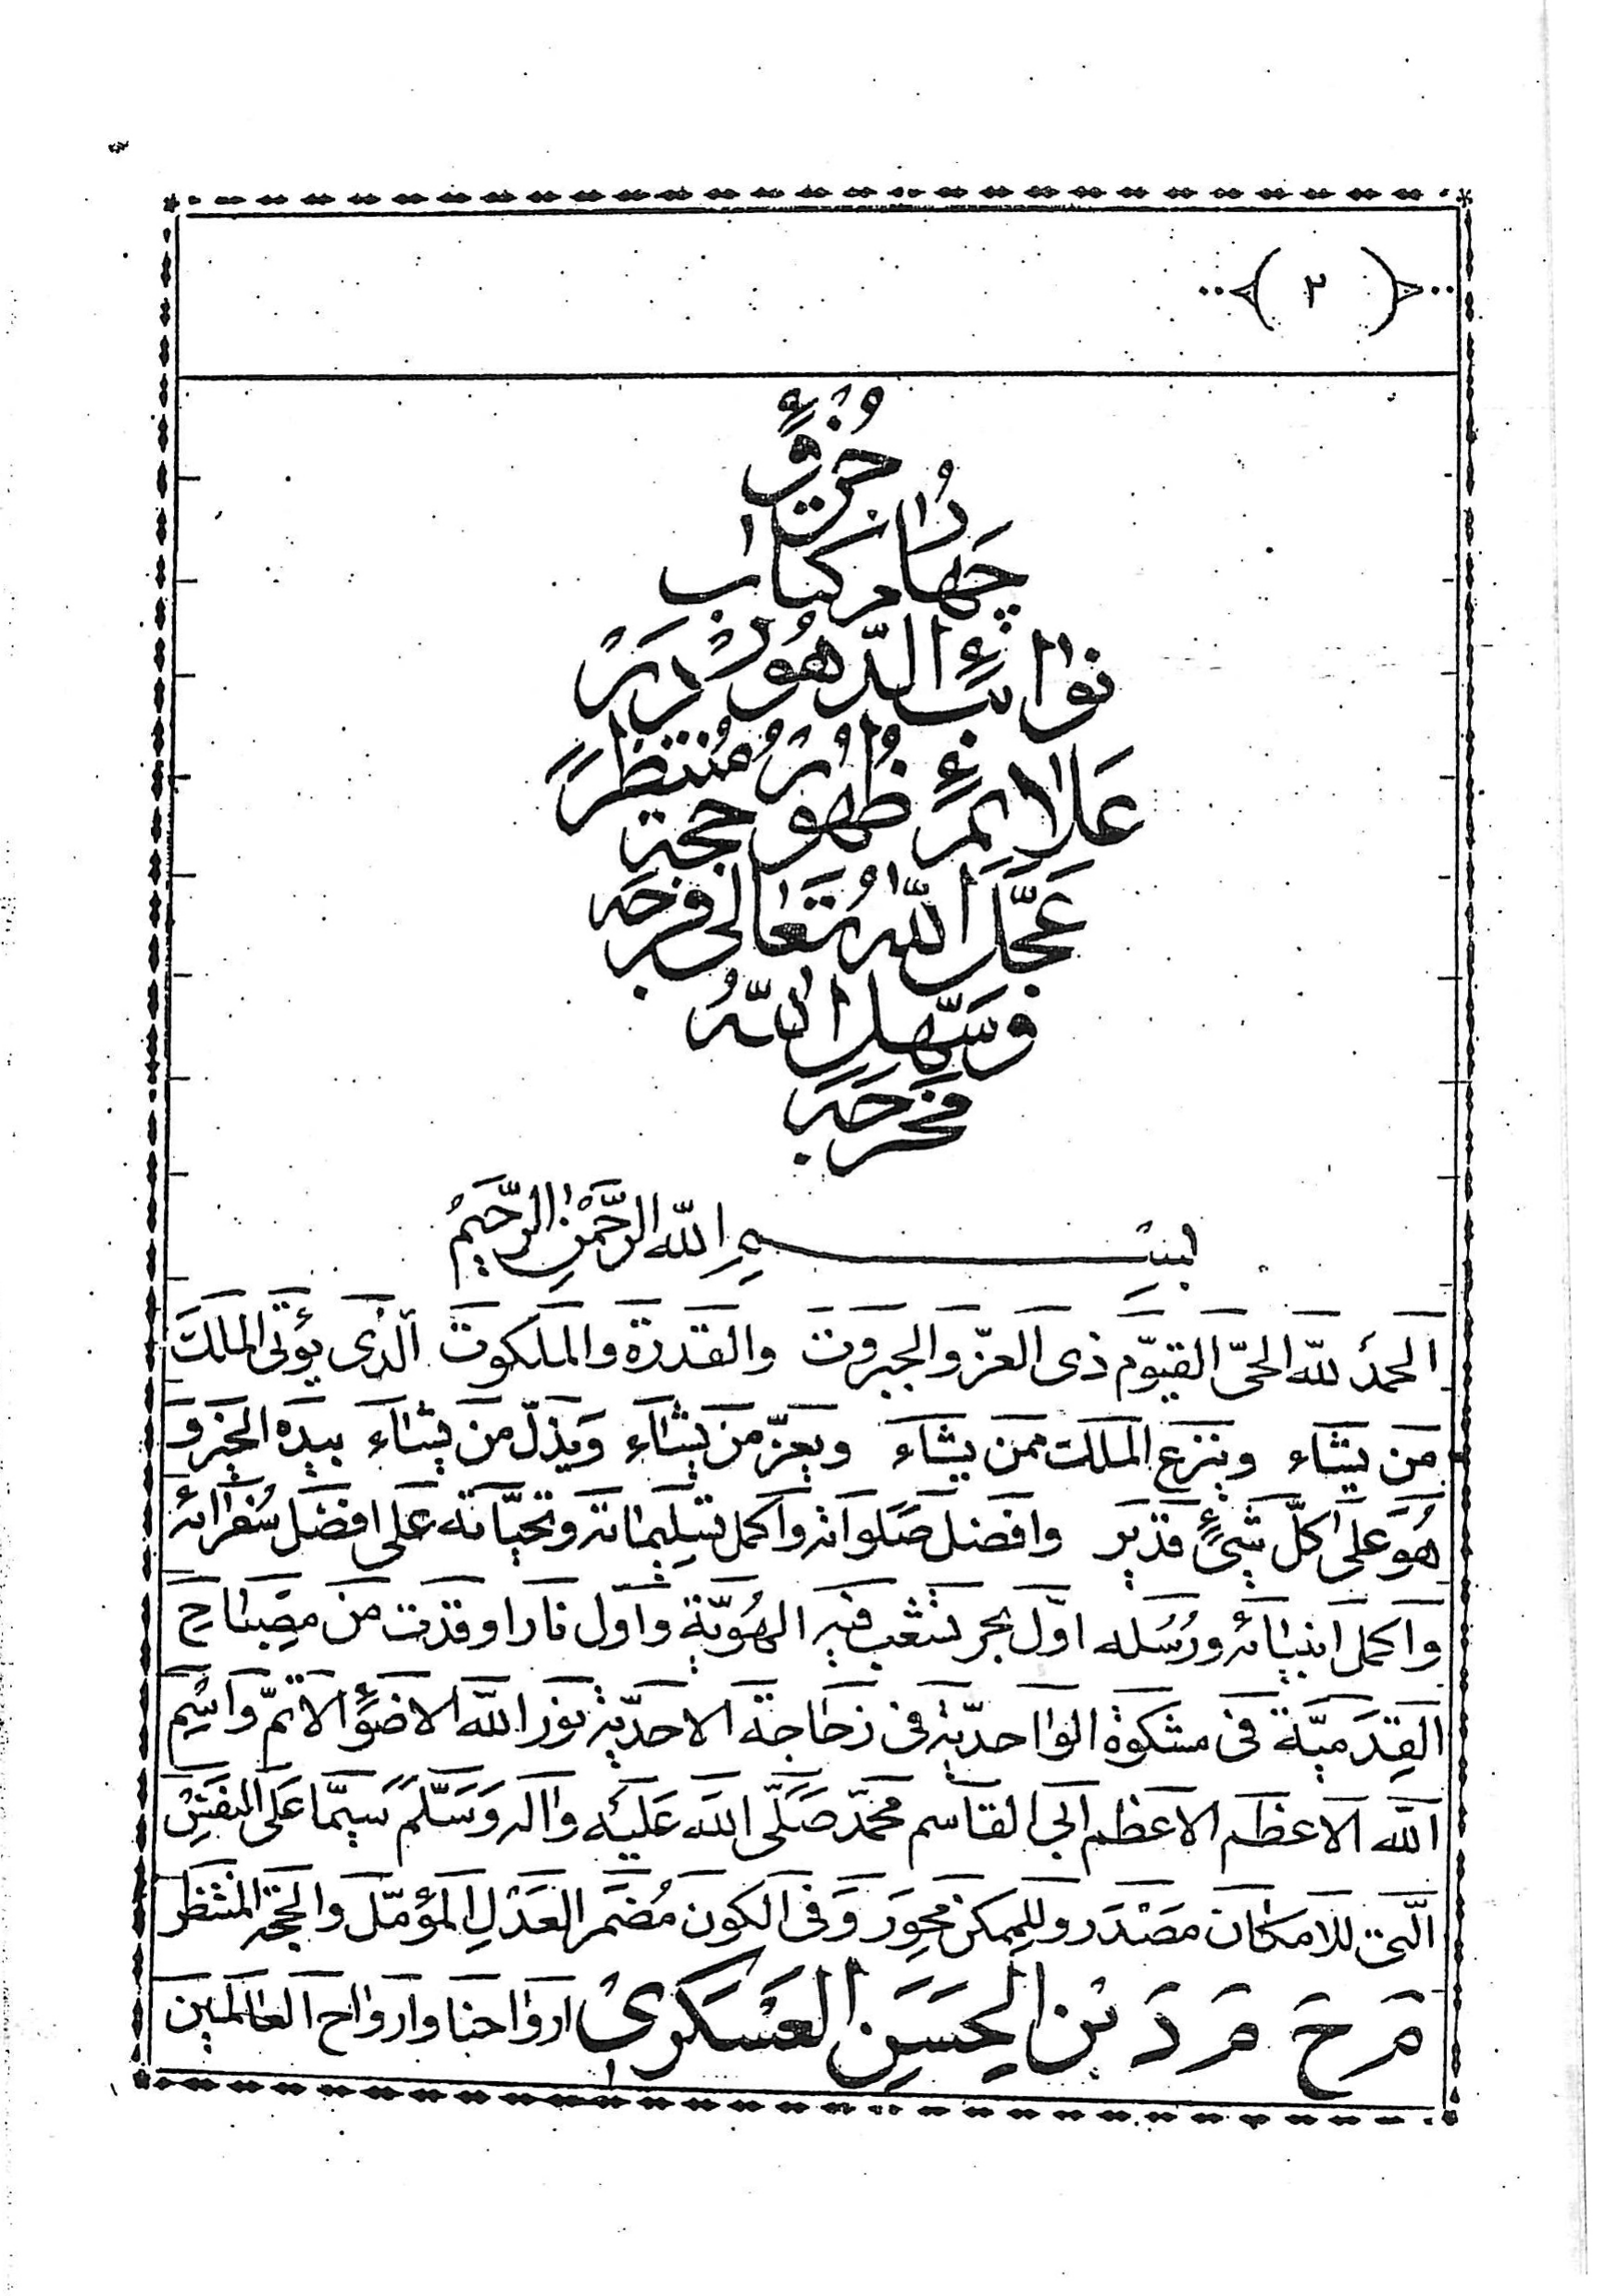 ﴿ ٢ ﴾
جُزوِ
چَهارُم کتاب
نوائبُ الدّهُور در
عَلائمِ ظُهُورُ حجة مُنتظَر
عَجَّلَ اللّٰهُ تَعٰالٰی فرجَه
وَسَهَّلَ اللّٰهُ
مَخرَجَه
بِسْمِ اللّٰهِ الرَّحْمٰنِ الرَّحیمُ
الحمدُ للّه الحیّ القیّوم ذی العزّ والجبروت والقدرة والملکوت الّذی یؤتی الملک
مَن یشٰاء وینزع الملک ممن یشٰاء ویعزّ مَن یشٰاء وَیذلّ مَن یشٰاء بیده الخیر وَ
هُوَ عَلیٰ کلّ شَیءٍ قدیر وافضل صَلَواته واکمل تسلیماته وتحیّاته علی افضَل سُفَرائه
وَاکمل انبیٰائه ورُسُله اوّل بحر تشعّب فیه الهُویّة وَاول نار اوقدت مَن مِصبٰاح
القِدَمیّة فی مشکوٰة الواحدیّة فی زجٰاجة الاحدیّة نور اللّه الاضوَءِ الاتمّ وَاسْمِ
اللّه الاعظم الاعظم ابی القٰاسم محمّد صَلّی اللّه عَلَیْه واٰله وَسَلّمَ سیّمٰا عَلی النفسِ
الّتی للامکٰان مَصْدَر وللمِمکن محِوَر وَفی الکون مُضمَر العَدْلِ المؤمّل والحجّة المنتظر
مَ حَ مَ دَ بْنِ الحَسَنِ العَسْکَریْ ارواحنا وارواح العٰالمین